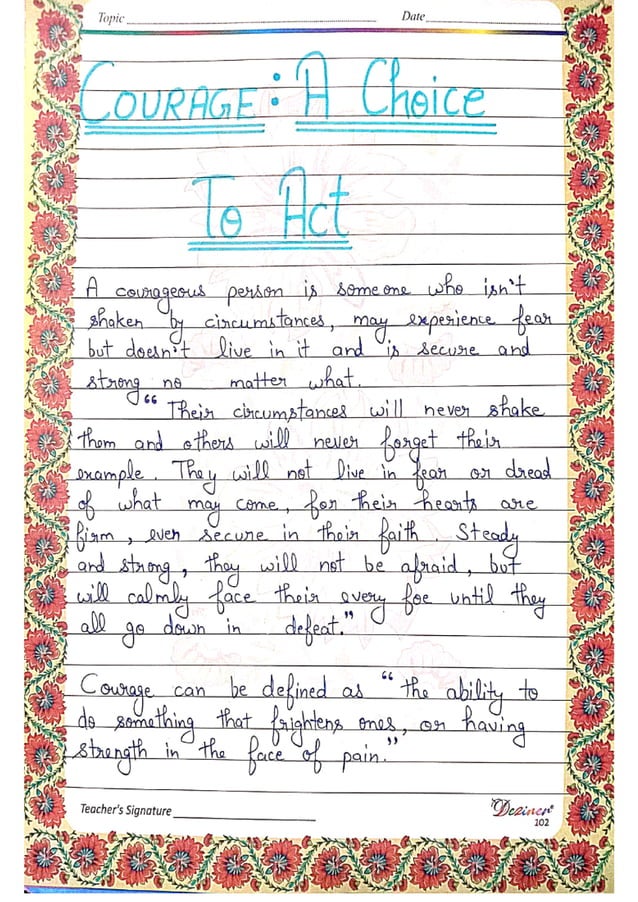 Topic Date
COURAGE: A Choice
To Act
A courageous person is someone who isn't
shaken by circumstances, may experience fear
but doesn't live in it and is secure and
strong no matter what.
"Their circumstances will never shake
them and others will never forget their
example. They will not live in fear or dread
of what may come, for their hearts are
firm, ever secure in their faith. Steady
and strong, they will not be afraid, but
will calmly face their every foe until they
all go down in defeat."
Courage can be defined as "the ability to
do something that frightens ones, or having
strength in the face of pain."
Teacher's Signature
Deziner
102